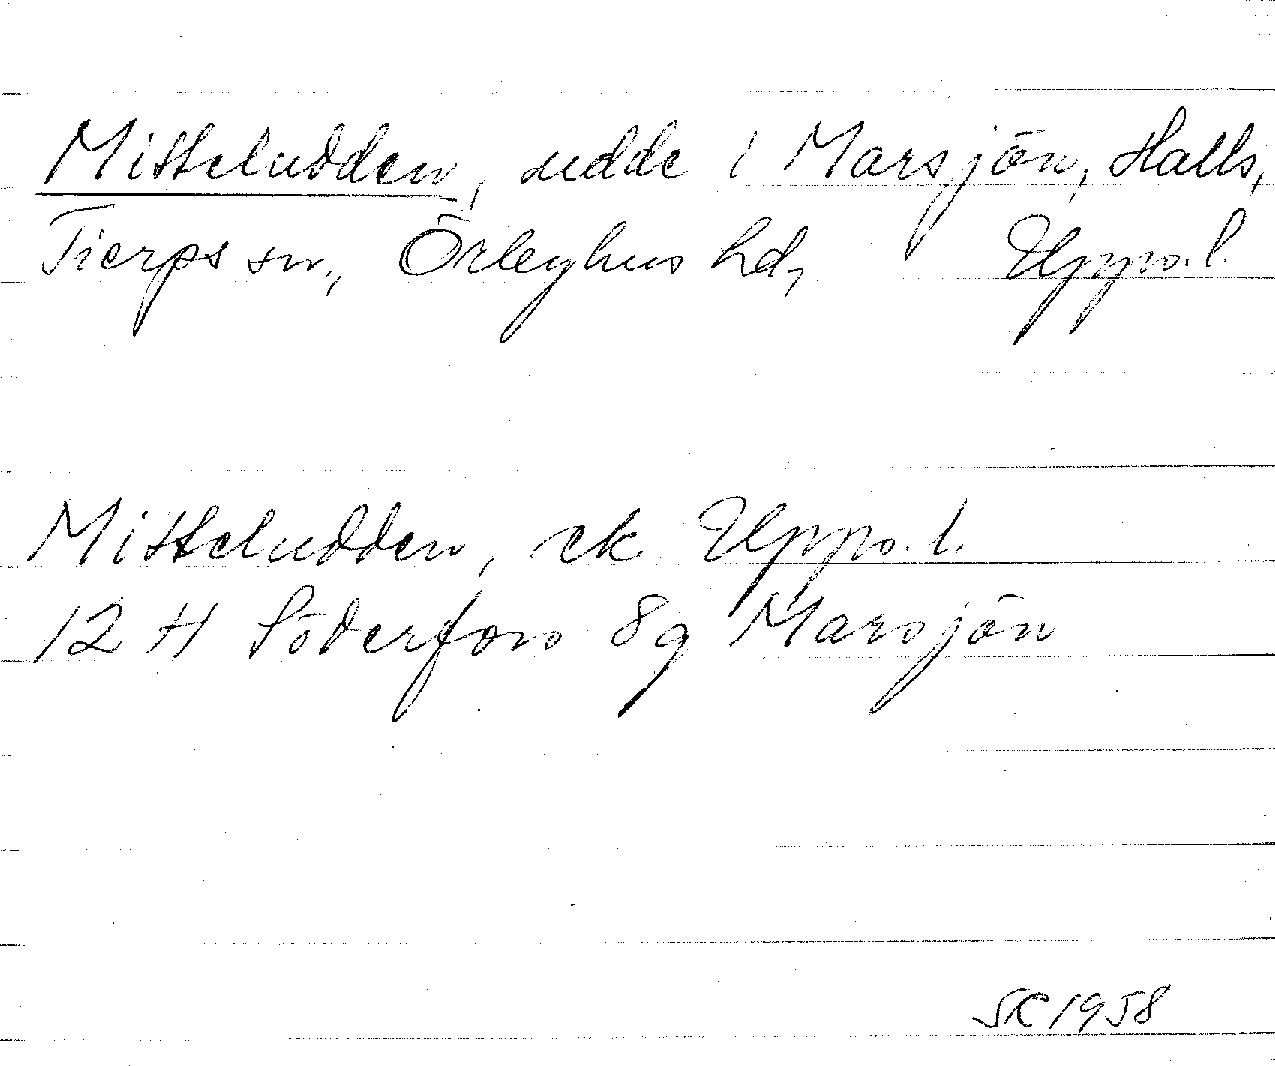 Mitteludden, udde i Marsjön, Halls,
Tierps sn., Örbyhus hd, Upps. l.
Mitteludden, ek Upps. l.
12 H Söderfors 8g Marsjön
SK 1958